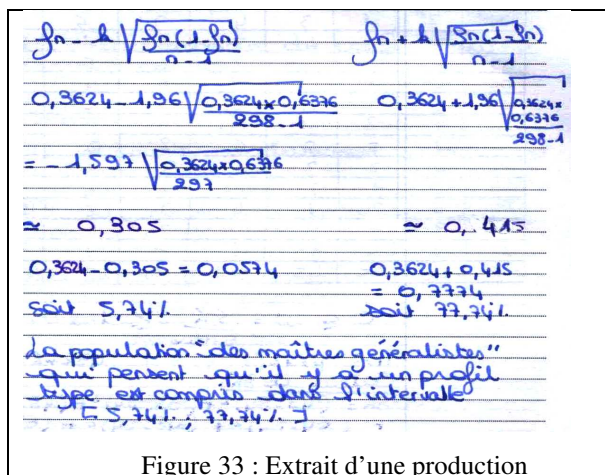 fn - k √(fn(1-fn)/n-1) fn + k √(fn(1-fn)/n-1)
0,3624 - 1,96 √(0,3624 x 0,6376/298-1) 0,3624 + 1,96 √(0,3624 x 0,6376/298-1)
= - 1,597 √(0,3624 x 0,6376/297)
≈ 0,305 ≈ 0,415
0,3624 - 0,305 = 0,0574 0,3624 + 0,415
= 0,7774
soit 5,74% soit 77,74%
La population "des maîtres généralistes"
qui pensent qu'il y a un profil
type est compris dans l'intervalle
[5,74% ; 77,74%]
Figure 33 : Extrait d'une production